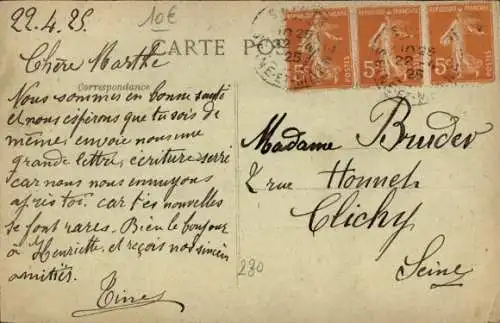 22.4.25.
10€
CARTE POS
Correspondance
Chère Marthe
Nous sommes en bonne santé
et nous espérons que tu sois de
même, envoie nous une
grande lettre, écriture serré
car nous nous ennuyons
après toi. car tes nouvelles
se font rares. Bien le bonjour
à Henriette et reçois nos sincèr
amitiés
Madame Bruder
2 rue Honnet
Clichy
Seine
280
REPUBLIQUE FRANÇAISE
REPUBLIQUE FRANÇAISE
REPUBLIQUE FRANÇAISE
5c
5c
5c
POSTES
POSTES
POSTES